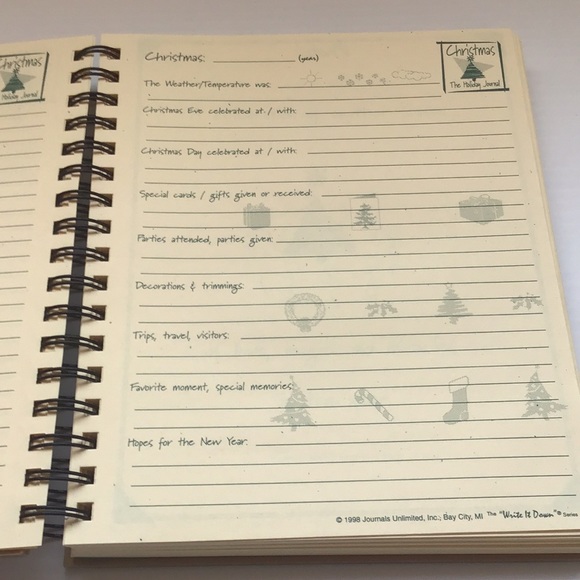 Christmas
The Holiday Journal
Christmas: (year)
Christmas
The Holiday Journal
The Weather/Temperature was:
Christmas Eve celebrated at / with:
Christmas Day celebrated at / with:
Special cards / gifts given or received:
Parties attended, parties given:
Decorations & trimmings:
Trips, travel, visitors:
Favorite moment, special memories:
Hopes for the New Year:
© 1998 Journals Unlimited, Inc.; Bay City, MI The "Write It Down"® Series